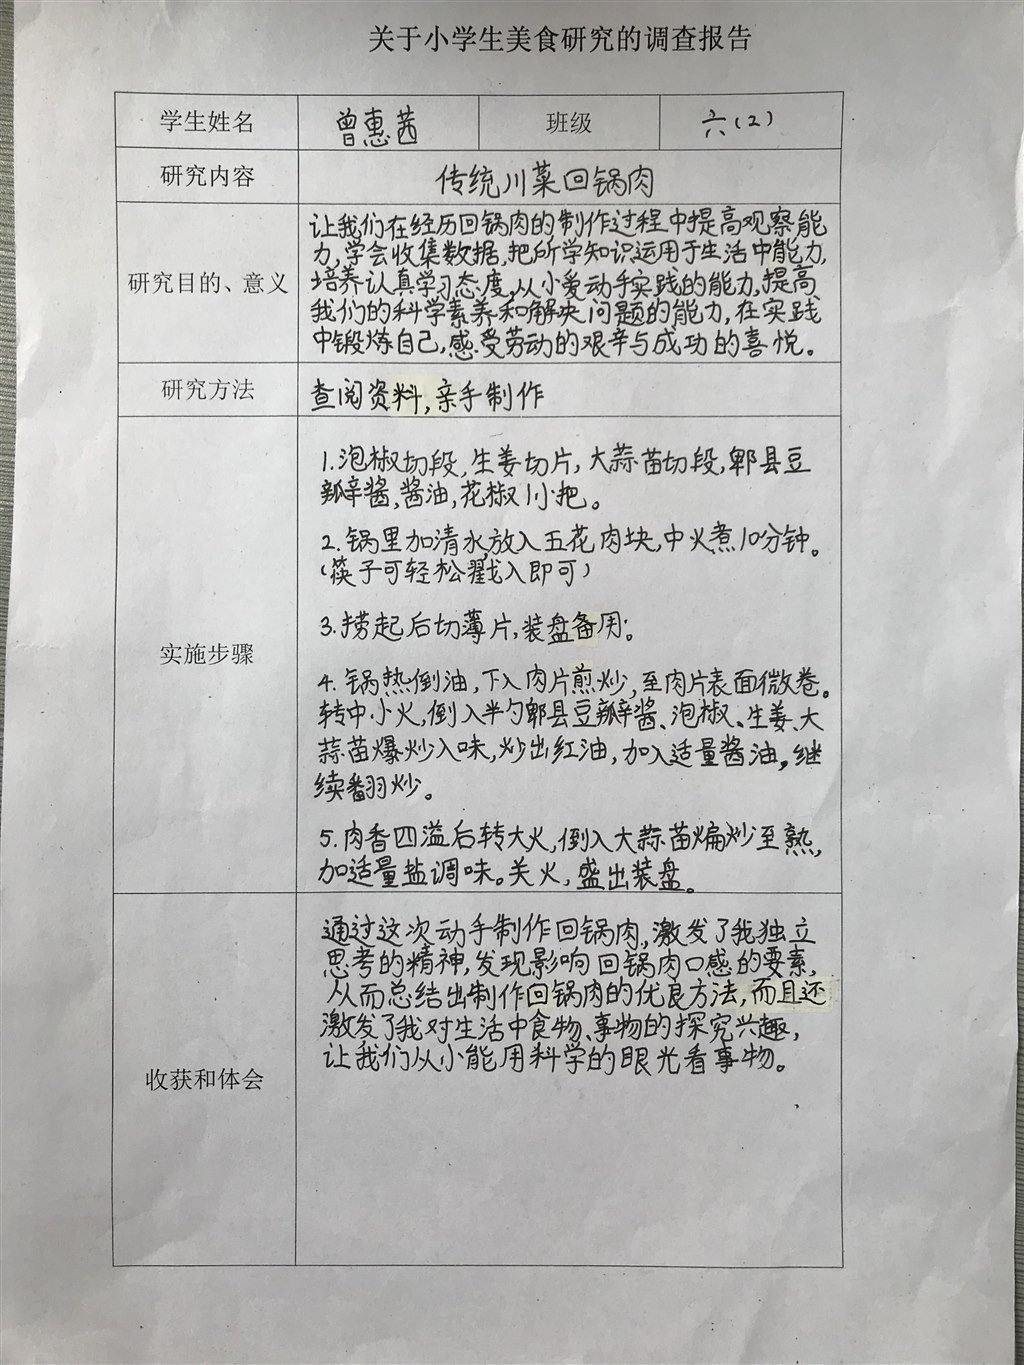 关于小学生美食研究的调查报告
学生姓名 曾惠茜 班级 六(2)
研究内容 传统川菜回锅肉
研究目的、意义
让我们在经历回锅肉的制作过程中提高观察能
力,学会收集数据,把所学知识运用于生活中能力,
培养认真学习态度,从小爱动手实践的能力,提高
我们的科学素养和解决问题的能力,在实践
中锻炼自己,感受劳动的艰辛与成功的喜悦。
研究方法 查阅资料,亲手制作
实施步骤
1.泡椒切段,生姜切片,大蒜苗切段,郫县豆
瓣酱,酱油,花椒1小把。
2.锅里加清水,放入五花肉块,中火煮10分钟。
(筷子可轻松戳入即可)
3.捞起后切薄片,装盘备用。
4.锅热倒油,下入肉片煎炒,至肉片表面微卷。
转中小火,倒入半勺郫县豆瓣酱、泡椒、生姜、大
蒜苗爆炒入味,炒出红油,加入适量酱油,继
续翻炒。
5.肉香四溢后转大火,倒入大蒜苗煸炒至熟,
加适量盐调味。关火,盛出装盘。
收获和体会
通过这次动手制作回锅肉,激发了我独立
思考的精神,发现影响回锅肉口感的要素,
从而总结出制作回锅肉的优良方法,而且还
激发了我对生活中食物、事物的探究兴趣,
让我们从小能用科学的眼光看事物。